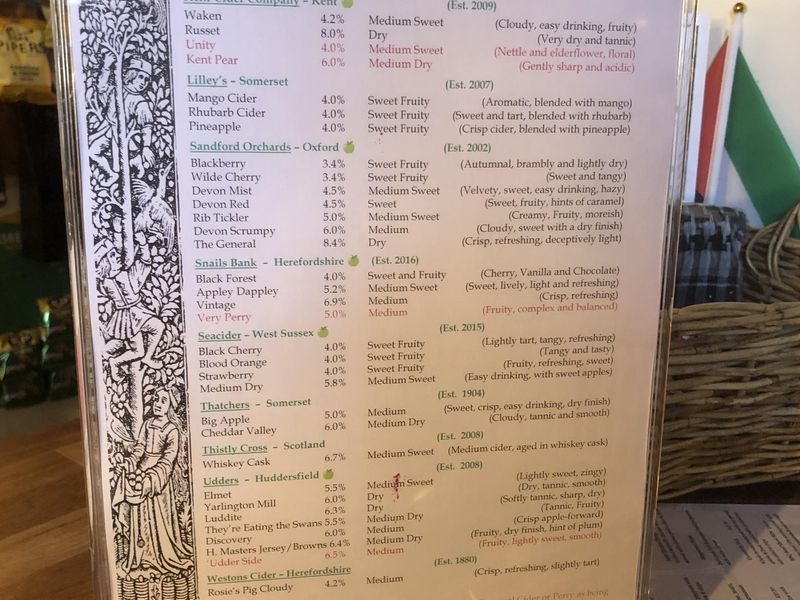 Kent Cider Company – Kent (Est. 2009)
Waken 4.2% Medium Sweet (Cloudy, easy drinking, fruity)
Russet 8.0% Dry (Very dry and tannic)
Unity 4.0% Medium Sweet (Nettle and elderflower, floral)
Kent Pear 6.0% Medium Dry (Gently sharp and acidic)
Lilley's – Somerset (Est. 2007)
Mango Cider 4.0% Sweet Fruity (Aromatic, blended with mango)
Rhubarb Cider 4.0% Sweet Fruity (Sweet and tart, blended with rhubarb)
Pineapple 4.0% Sweet Fruity (Crisp cider, blended with pineapple)
Sandford Orchards – Oxford (Est. 2002)
Blackberry 3.4% Sweet Fruity (Autumnal, brambly and lightly dry)
Wilde Cherry 3.4% Sweet Fruity (Sweet and tangy)
Devon Mist 4.5% Medium Sweet (Velvety, sweet, easy drinking, hazy)
Devon Red 4.5% Sweet (Sweet, fruity, hints of caramel)
Rib Tickler 5.0% Medium Sweet (Creamy, Fruity, moreish)
Devon Scrumpy 6.0% Medium (Cloudy, sweet with a dry finish)
The General 8.4% Dry (Crisp, refreshing, deceptively light)
Snails Bank – Herefordshire (Est. 2016)
Black Forest 4.0% Sweet and Fruity (Cherry, Vanilla and Chocolate)
Appley Dappley 5.2% Medium Sweet (Sweet, lively, light and refreshing)
Vintage 6.9% Medium (Crisp, refreshing)
Very Perry 5.0% Medium (Fruity, complex and balanced)
Seacider – West Sussex (Est. 2015)
Black Cherry 4.0% Sweet Fruity (Lightly tart, tangy, refreshing)
Blood Orange 4.0% Sweet Fruity (Tangy and tasty)
Strawberry 4.0% Sweet Fruity (Fruity, refreshing, sweet)
Medium Dry 5.8% Medium Sweet (Easy drinking, with sweet apples)
Thatchers – Somerset (Est. 1904)
Big Apple 5.0% Medium (Sweet, crisp, easy drinking, dry finish)
Cheddar Valley 6.0% Medium Dry (Cloudy, tannic and smooth)
Thistly Cross – Scotland (Est. 2008)
Whiskey Cask 6.7% Medium Sweet (Medium cider, aged in whiskey cask)
Udders – Huddersfield (Est. 2008)
Elmet 5.5% Medium Sweet (Lightly sweet, zingy)
Yarlington Mill 6.0% Dry (Dry, tannic, smooth)
Luddite 6.3% Dry (Softly tannic, sharp, dry)
They're Eating the Swans 5.5% Medium Dry (Tannic, Fruity)
Discovery 6.0% Medium (Crisp apple-forward)
H. Masters Jersey/Browns 6.4% Medium Dry (Fruity, dry finish, hint of plum)
'Udder Side 6.5% Medium (Fruity, lightly sweet, smooth)
Westons Cider – Herefordshire (Est. 1880)
Rosie's Pig Cloudy 4.2% Medium (Crisp, refreshing, slightly tart)
Cider or Perry as being